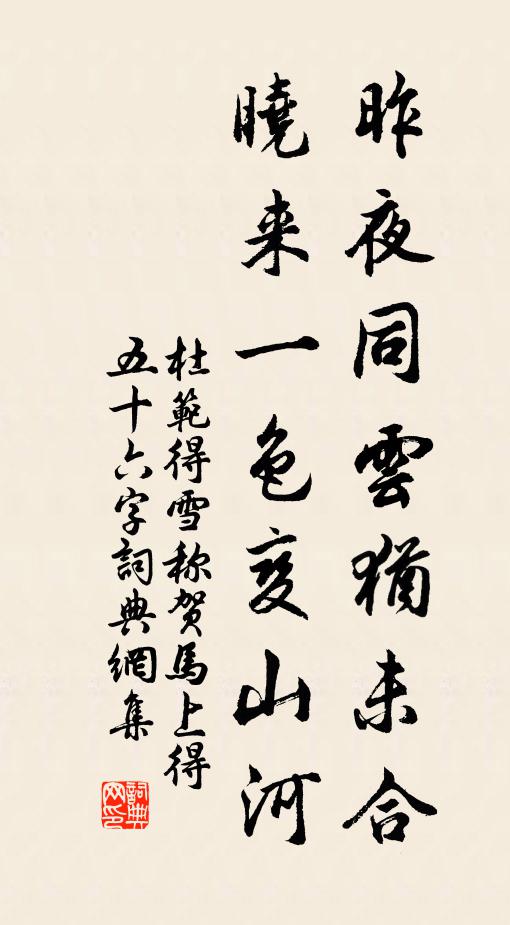 昨夜同雲猶未合
曉来一色变山河
杜範得雪称贺馬上得
五十六字詞典網集
詞典网印